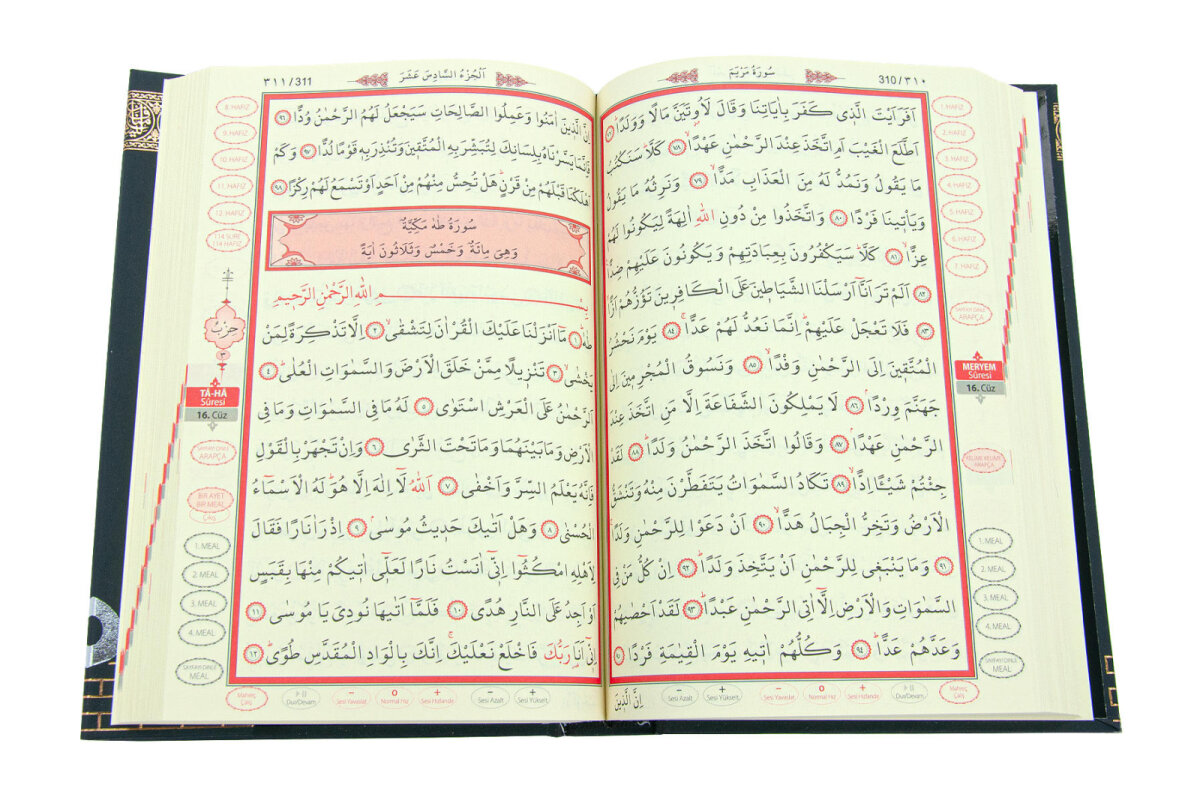 سُورَةُ مَرْيَمَ
310/٣١٠
اَفَرَاَيْتَ الَّذٖى كَفَرَ بِاٰيَاتِنَا وَقَالَ لَاُو۫تَيَنَّ مَالًا وَوَلَدًاؕ ٧٧
اَطَّلَعَ الْغَيْبَ اَمِ اتَّخَذَ عِنْدَ الرَّحْمٰنِ عَهْدًاۙ ٧٨ كَلَّاؕ سَنَكْتُبُ
مَا يَقُولُ وَنَمُدُّ لَهُ مِنَ الْعَذَابِ مَدًّاۙ ٧٩ وَنَرِثُهُ مَا يَقُولُ
وَيَأْتٖينَا فَرْدًا ٨٠ وَاتَّخَذُوا مِنْ دُونِ اللّٰهِ اٰلِهَةً لِيَكُونُوا لَهُمْ
عِزًّاۙ ٨١ كَلَّاؕ سَيَكْفُرُونَ بِعِبَادَتِهِمْ وَيَكُونُونَ عَلَيْهِمْ ضِدًّا
٨٢ اَلَمْ تَرَ اَنَّٓا اَرْسَلْنَا الشَّيَاطٖينَ عَلَى الْكَافِرٖينَ تَؤُزُّهُمْ اَزًّا
٨٣ فَلَا تَعْجَلْ عَلَيْهِمْؕ اِنَّمَا نَعُدُّ لَهُمْ عَدًّاۚ ٨٤ يَوْمَ نَحْشُرُ
الْمُتَّقٖينَ اِلَى الرَّحْمٰنِ وَفْدًاۙ ٨٥ وَنَسُوقُ الْمُجْرِمٖينَ اِلٰى
جَهَنَّمَ وِرْدًاۘ ٨٦ لَا يَمْلِكُونَ الشَّفَاعَةَ اِلَّا مَنِ اتَّخَذَ عِنْدَ
الرَّحْمٰنِ عَهْدًاۘ ٨٧ وَقَالُوا اتَّخَذَ الرَّحْمٰنُ وَلَدًاؕ ٨٨ لَقَدْ
جِئْتُمْ شَيْئًا اِدًّاۙ ٨٩ تَكَادُ السَّمٰوَاتُ يَتَفَطَّرْنَ مِنْهُ وَتَنْشَقُّ
الْاَرْضُ وَتَخِرُّ الْجِبَالُ هَدًّاۙ ٩٠ اَنْ دَعَوْا لِلرَّحْمٰنِ وَلَدًاۚ
٩١ وَمَا يَنْبَغٖى لِلرَّحْمٰنِ اَنْ يَتَّخِذَ وَلَدًاؕ ٩٢ اِنْ كُلُّ مَنْ فِى
السَّمٰوَاتِ وَالْاَرْضِ اِلَّٓا اٰتِى الرَّحْمٰنِ عَبْدًاؕ ٩٣ لَقَدْ اَحْصٰيهُمْ
وَعَدَّهُمْ عَدًّاؕ ٩٤ وَكُلُّهُمْ اٰتٖيهِ يَوْمَ الْقِيٰمَةِ فَرْدًا ٩٥
اِنَّ الَّذٖينَ
1. HAFIZ
2. HAFIZ
3. HAFIZ
4. HAFIZ
5. HAFIZ
6. HAFIZ
7. HAFIZ
SAYFAYI DİNLE
ARAPÇA
MERYEM
Sûresi
16. Cüz
KELİME KELİME
ARAPÇA
1. MEAL
2. MEAL
3. MEAL
4. MEAL
SAYFAYI DİNLE
MEAL
− Sesi Azalt
+ Sesi Yükselt
− Sesi Yavaşlat
o Normal Hız
+ Sesi Hızlandır
Dur/Devam
Mahreç
Çalış
اَلْجُزْءُ السَّادِسَ عَشَرَ
٣١١/311
اِنَّ الَّذٖينَ اٰمَنُوا وَعَمِلُوا الصَّالِحَاتِ سَيَجْعَلُ لَهُمُ الرَّحْمٰنُ وُدًّا ٩٦
فَاِنَّمَا يَسَّرْنَاهُ بِلِسَانِكَ لِتُبَشِّرَ بِهِ الْمُتَّقٖينَ وَتُنْذِرَ بِهٖ قَوْمًا لُدًّا ٩٧ وَكَمْ
اَهْلَكْنَا قَبْلَهُمْ مِنْ قَرْنٍؕ هَلْ تُحِسُّ مِنْهُمْ مِنْ اَحَدٍ اَوْ تَسْمَعُ لَهُمْ رِكْزًا ٩٨
سُورَةُ طٰهٰ مَكِّيَّةٌ
وَهِىَ مِائَةٌ وَخَمْسٌ وَثَلَاثُونَ اٰيَةً
بِسْمِ اللّٰهِ الرَّحْمٰنِ الرَّحٖيمِ
طٰهٰۜ ١ مَٓا اَنْزَلْنَا عَلَيْكَ الْقُرْاٰنَ لِتَشْقٰىۙ ٢ اِلَّا تَذْكِرَةً لِمَنْ
يَخْشٰىۙ ٣ تَنْزٖيلًا مِمَّنْ خَلَقَ الْاَرْضَ وَالسَّمٰوَاتِ الْعُلٰىؕ ٤
اَلرَّحْمٰنُ عَلَى الْعَرْشِ اسْتَوٰى ٥ لَهُ مَا فِى السَّمٰوَاتِ وَمَا فِى
الْاَرْضِ وَمَا بَيْنَهُمَا وَمَا تَحْتَ الثَّرٰى ٦ وَاِنْ تَجْهَرْ بِالْقَوْلِ
فَاِنَّهُ يَعْلَمُ السِّرَّ وَاَخْفٰى ٧ اَللّٰهُ لَٓا اِلٰهَ اِلَّا هُوَؕ لَهُ الْاَسْمَٓاءُ
الْحُسْنٰى ٨ وَهَلْ اَتٰيكَ حَدٖيثُ مُوسٰىۘ ٩ اِذْ رَاٰ نَارًا فَقَالَ
لِاَهْلِهِ امْكُثُٓوا اِنّٖٓى اٰنَسْتُ نَارًا لَعَلّٖٓى اٰتٖيكُمْ مِنْهَا بِقَبَسٍ
اَوْ اَجِدُ عَلَى النَّارِ هُدًى ١٠ فَلَمَّٓا اَتٰيهَا نُودِىَ يَا مُوسٰى ١١
اِنّٖٓى اَنَا رَبُّكَ فَاخْلَعْ نَعْلَيْكَۚ اِنَّكَ بِالْوَادِ الْمُقَدَّسِ طُوًىؕ ١٢
8. HAFIZ
9. HAFIZ
10. HAFIZ
11. HAFIZ
12. HAFIZ
114 SURE
114 HAFIZ
حِزْبُ
٣
TÂ-HÂ
Sûresi
16. Cüz
SAYFAYI DİNLE
ARAPÇA
BİR AYET
BİR MEAL
1. MEAL
2. MEAL
3. MEAL
4. MEAL
SAYFAYI DİNLE
MEAL
Mahreç
Çalış
Dur/Devam
− Sesi Yavaşlat
o Normal Hız
+ Sesi Hızlandır
− Sesi Azalt
+ Sesi Yükselt